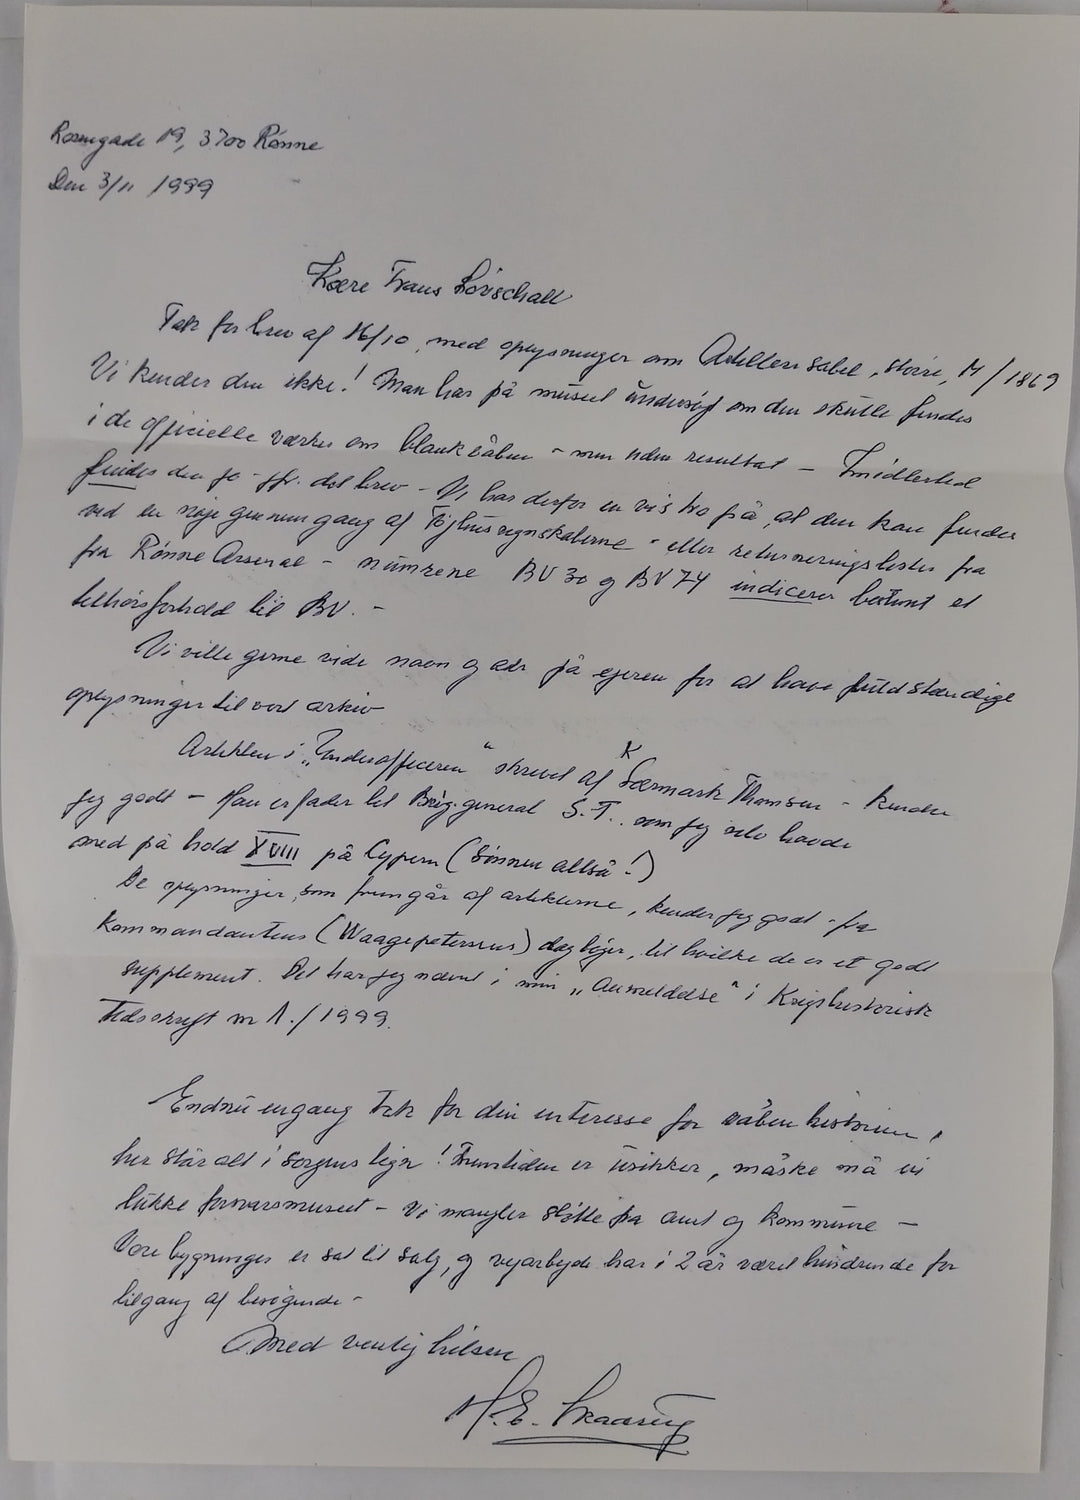 Rosengade 19, 3700 Rønne
Den 3/11 1999
Kære Frans Lövschall
Tak for brev af 16/10, med oplysninger om Artilleri sabel, større, M/1869
Vi kender den ikke! Man har på museet undersøgt om den skulle findes
i de officielle værker om blankvåben - men uden resultat - Imidlertid
findes den jo - jfr. dit brev - Vi har derfor en vis tro på, at den kan findes
ved en nøje gennemgang af Tøjhusregnskaberne - eller returneringslister fra
fra Rønne Arsenal - numrene BV 30 og BV 74 indicerer bestemt et
tilhørsforhold til BV. -
Vi ville gerne vide navn og adr på ejeren for at have fuldstændige
oplysninger til vort arkiv
Artiklen i „Underofficeren" skrevet af K Særmark Thomsen - kender
jeg godt - Han er fader til Brig.general S.T. som jeg selv havde
med på hold XVIII på Cypern (sønnen altså!)
De oplysninger, som fremgår af artiklerne, kender jeg godt - fra
Kommandantens (Waagepetersens) dagbøger, til hvilke de er et godt
supplement. Det har jeg nævnt i min „Anmeldelse" i Krigshistorisk
Tidsskrift nr 1./1999.
Endnu engang Tak for din interesse for våbenhistorien,
her står alt i sorgens tegn! Fremtiden er usikker, måske må vi
lukke forsvarsmuseet - Vi mangler støtte fra amt og kommune -
Vore bygninger er sat til salg, og vejarbejde har i 2 år været hindrende for
tilgang af besøgende -
Med venlig hilsen